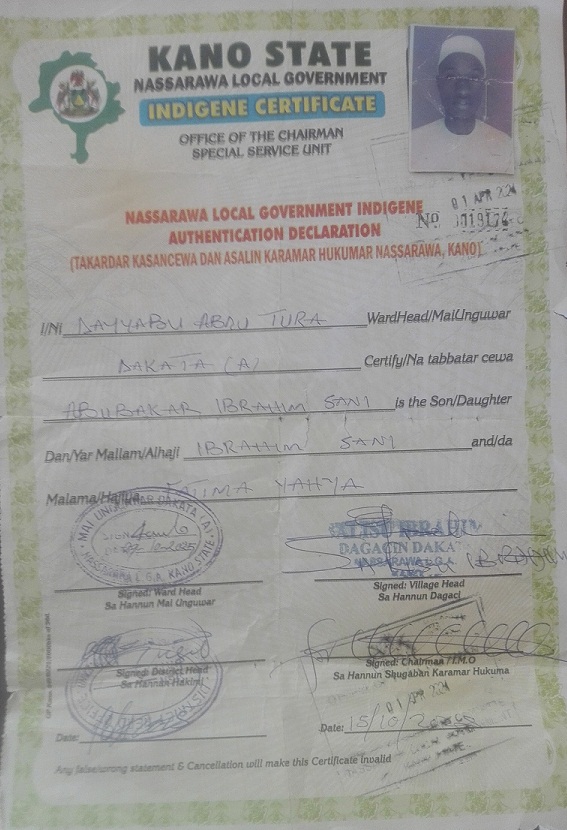 KANO STATE
NASSARAWA LOCAL GOVERNMENT
INDIGENE CERTIFICATE
OFFICE OF THE CHAIRMAN
SPECIAL SERVICE UNIT
01 APR 2024
NASSARAWA LOCAL GOVERNMENT INDIGENE
No
AUTHENTICATION DECLARATION
(TAKARDAR KASANCEWA DAN ASALIN KARAMAR HUKUMAR NASSARAWA, KANO)
I/Ni DAYYABU ABDU TURA WardHead/MaiUnguwar
DAKATA (A) Certify/Na tabbatar cewa
ABUBAKAR IBRAHIM SANI is the Son/Daughter
Dan/Yar Mallam/Alhaji IBRAHIM SANI and/da
Malama/Hajiya FATIMA YAHYA
MAI UNGUWAR DAKATA (A)
SIGN
NASSARAWA L.G.A. KANO STATE
IBRAHIM
DAGACIN DAKATA
NASSARAWA L.G.A
KANO
IBRAHIM
Signed: Ward Head
Sa Hannun Mai Unguwar
Signed: Village Head
Sa Hannun Dagaci
Signed: District Head
Sa Hannun Hakimi
Signed: Chairman / I.M.O
Sa Hannun Shugaban Karamar Hukuma
01 APR 2024
Date:
Date: 15/10/
Any false/wrong statement & Cancellation will make this Certificate invalid